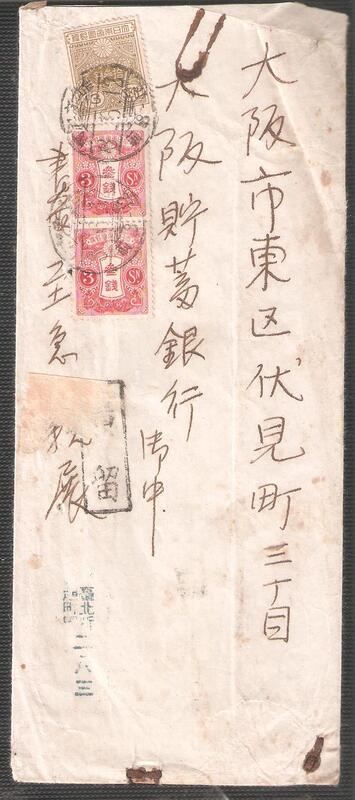 大阪市東区伏見町三丁目
大阪貯蓄銀行
御中
書留至急
展
留
大日本帝國郵便
3 參錢 3 SN
3 參錢 3 SN
臺北
二六三